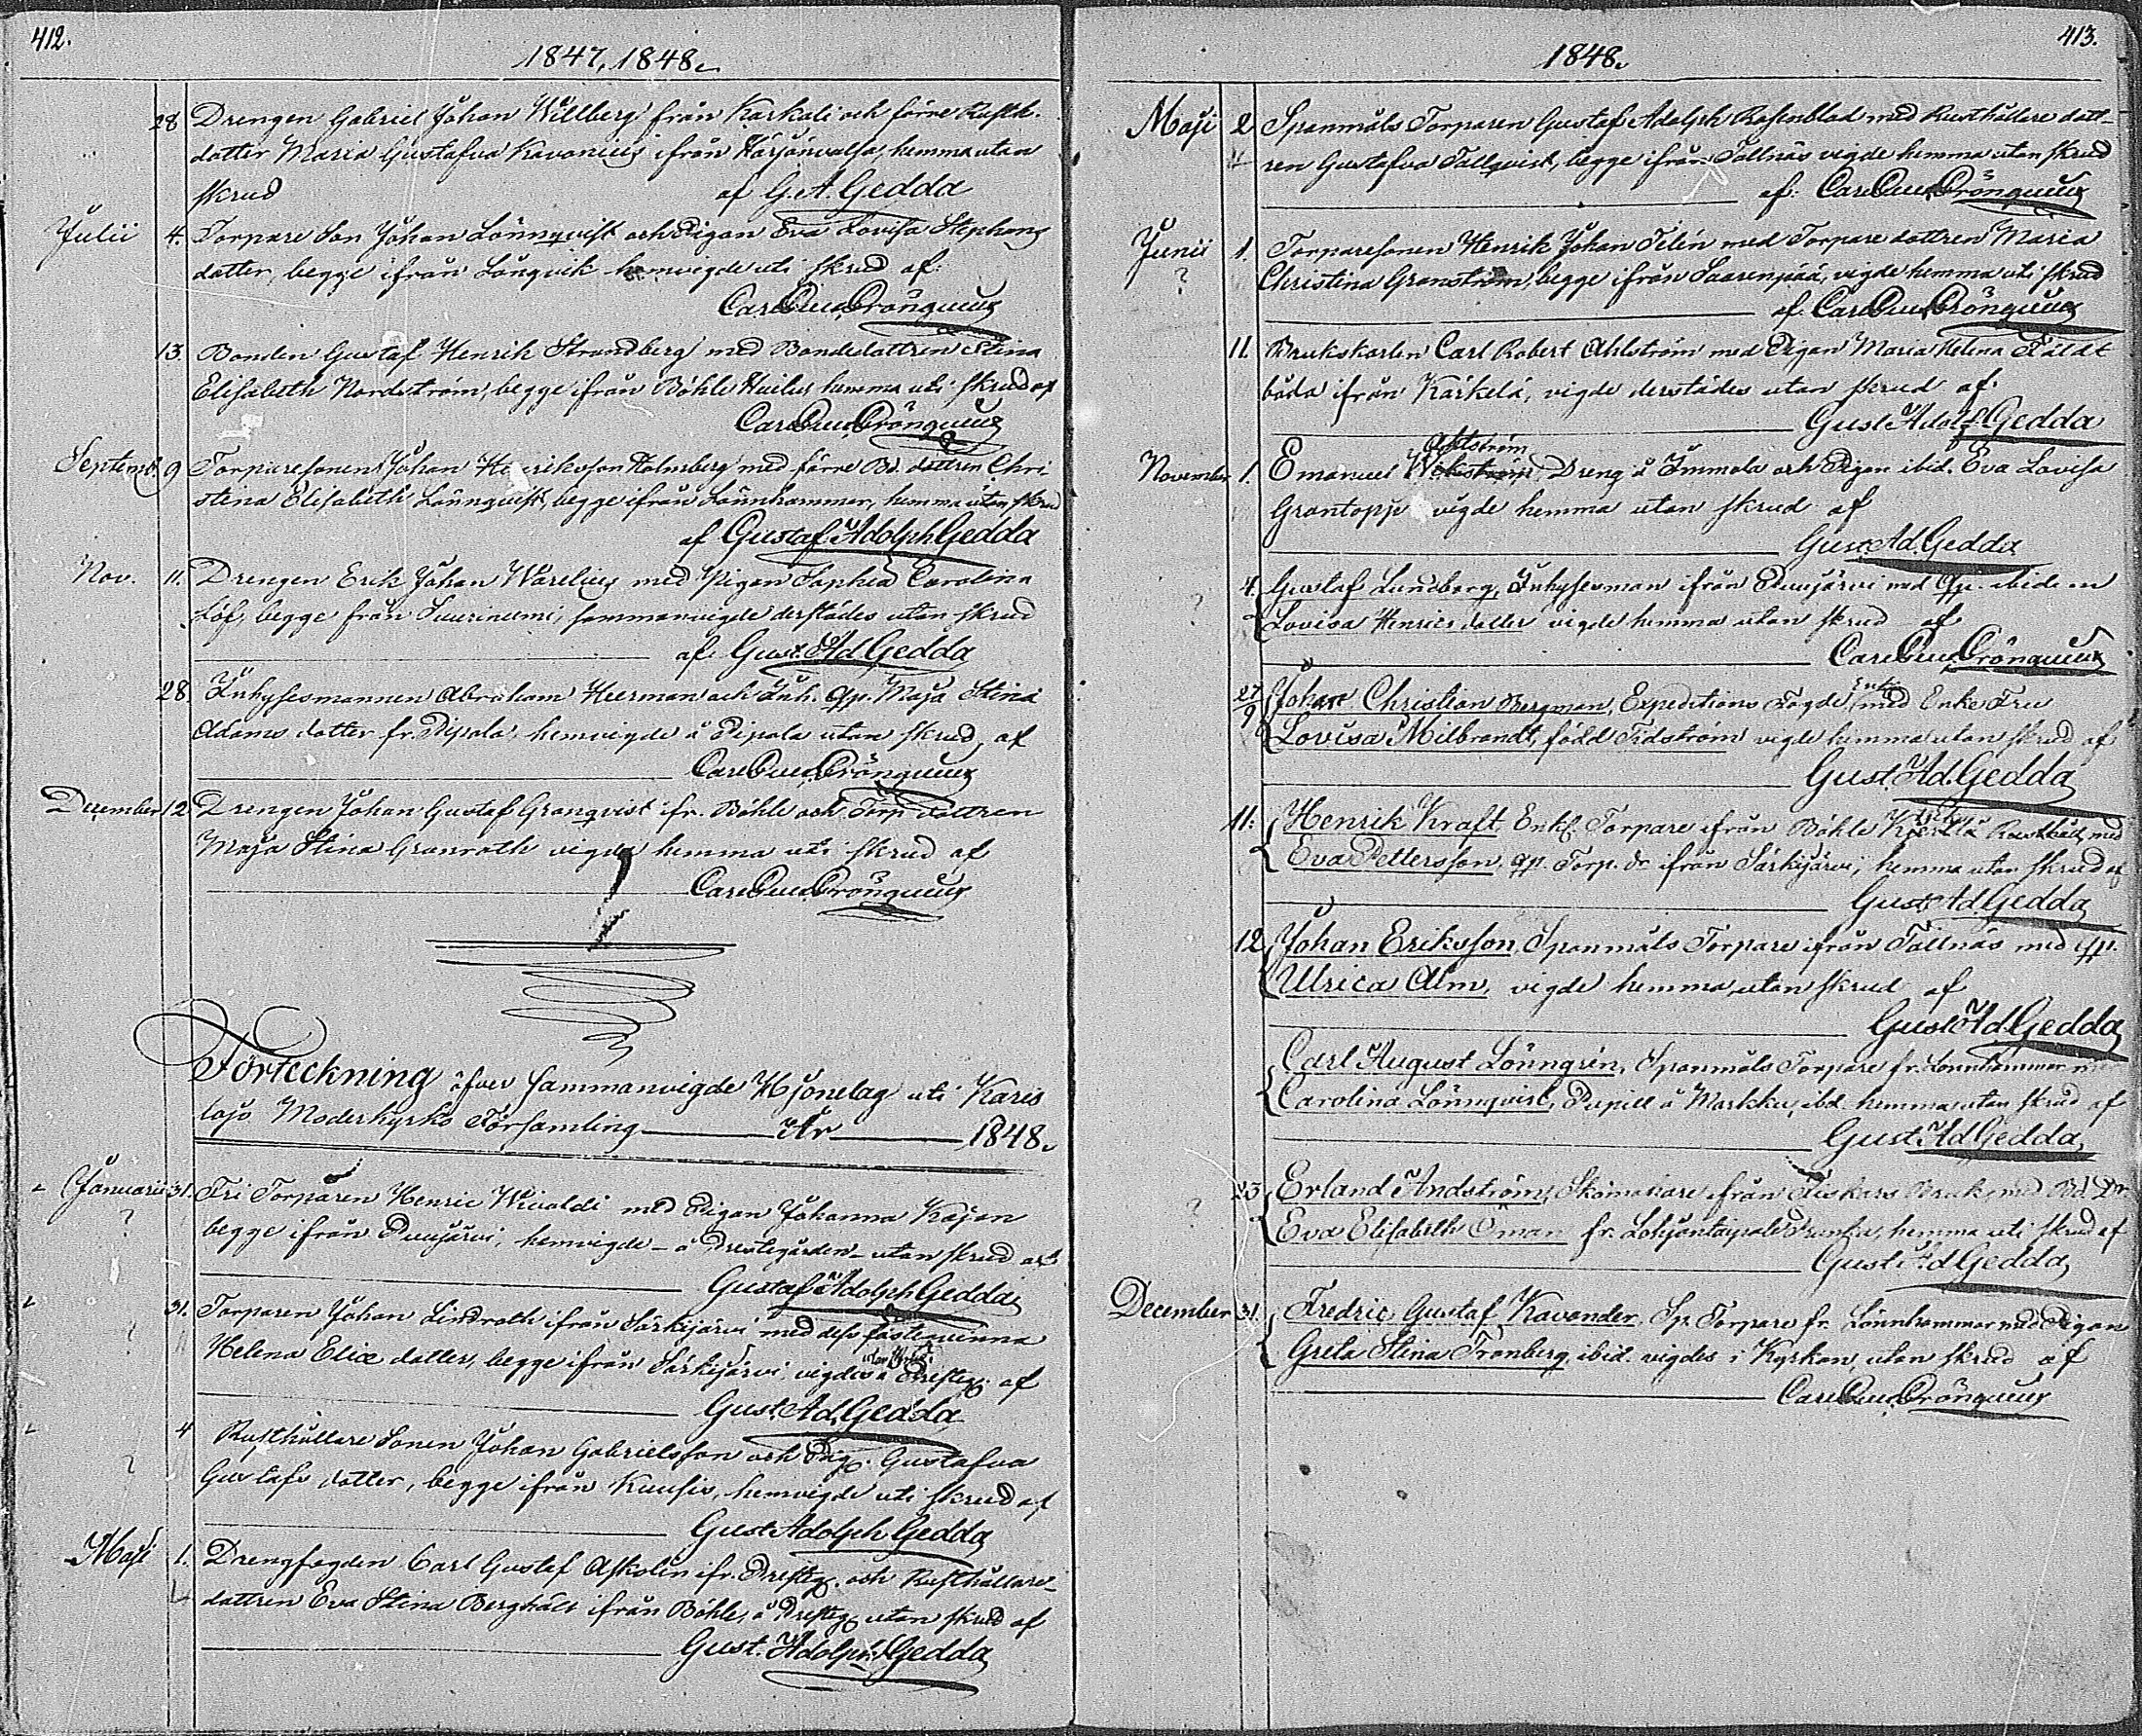 412.
1847, 1848.
28 Drengen Gabriel Johan Willberg från Karkali och förre Rusth.
dotter Maria Gustafva Kavonius ifrån Härjänvalsa, hemma utan
skrud af G. A. Gedda
Julii 4. Torpare Son Johan Lönnqvist och Pigan Eva Lovisa Stephans
dotter, begge ifrån Långvik hemvigde uti skrud af
Carl Cröngvist
13. Bonden Gustaf Henrik Strandberg med Bondedottren Stina
Elisabeth Nordström, begge ifrån Böhle hemma uti skrud af
Septemb. 9 Torparesonen Johan Henriksson Holmberg med förre Bd. dottren Chri
stina Elisabeth Lönnqvist, begge ifrån Lönnhammar, hemma utan skrud
af Gustaf Adolph Gedda
Nov. 11. Drengen Erik Johan Warelius med Pigan Sophia Carolina
Löf, begge från Suurniemi, sammanvigde derstädes utan skrud
af Gust. Ad. Gedda
28. Inhysesmannen Abraham Heerman och Inh. Qp. Maja Stina
Adams dotter fr. Pipola, hemvigde å Pipola utan skrud, af
December 12. Drengen Johan Gustaf Granqvist ifr. Böhle och Torp. dottren
Maja Stina Granroth vigde hemma uti skrud af
Förteckning öfver sammanvigde Hjonelag uti Karis
lojo Moderkyrko Församling År 1848.
Januarii 31. Fri Torparen Henric Wivaldi med Pigan Johanna Kajan
begge ifrån Puujärvi, hemvigde - å Prestegården - utan skrud af
Gustaf Adolph Gedda
31. Torparen Johan Lindroth ifrån Särkijärvi med dess fästeqvinna
Helena Eliæ dotter, begge ifrån Särkijärvi vigde å Presteg. af
Gust. Ad. Gedda
4 Rusthållare Sonen Johan Gabrielsson och Pig. Gustafva
Gustafs dotter, begge ifrån Kuusis, hemvigde uti skrud af
Gust Adolph Gedda
Maji 1. Drengfogden Carl Gustaf Askolin ifr. Presteg. och Rusthållare-
dottren Eva Stina Berghäll ifrån Böhle, å Presteg. utan skrud af
Gust. Adolph Gedda
413.
1848.
Maji 2 Spanmåls Torparen Gustaf Adolph Rosenblad med Rusthållare dott-
ren Gustafva Tallqvist, begge ifrån Tallnäs vigde hemma utan skrud
af
Junii 1. Torparesonen Henrik Johan Telén med Torpare dottren Maria
? Christina Granström, begge ifrån Saarenpää, vigde hemma uti skrud
af
11. Brukskarlen Carl Robert Ahlström med Pigan Maria Helena Fäldt
båda ifrån Kärkelä, vigde derstädes utan skrud af
Gust. Adolf Gedda
Ahlström
November 1. Emanuel Dreng å Immola och Pigan ibid. Eva Lovisa
Grantopje vigde hemma utan skrud af
Gust Ad Gedda
4. Gustaf Lundberg, Inhysesman ifrån Puujärvi med Qp. ibidem
? Lovisa Henricsdotter vigde hemma utan skrud af
27/9 Johan Christian Bergman, Expeditions Fogde med Enke Fru
Lovisa Milbrandt, född Tidström vigde hemma utan skrud af
Gust. Ad. Gedda
11. Henrik Kraft, Enkl. Torpare ifrån Böhle med
Eva Pettersson, qp. Torp. dr ifrån Särkijärvi, hemma utan skrud af
Gust. Ad Gedda
12. Johan Eriksson, Spanmåls Torpare ifrån Tallnäs med qp.
Ulrica Alm, vigde hemma, utan skrud af
Gust Ad. Gedda
Carl August Lönngrén, Spanmåls Torpare fr. Lönnhammar
Carolina Lönnqvist, Pupill å Markku, ibd. hemma, utan skrud af
Gust. Ad Gedda
23 Erland Andström, Skomakare ifrån Fiskars Bruk, med Bd. Dr
? Eva Elisabeth Öman fr. Lohjantaipale, hemma uti skrud af
Gust Ad Gedda
December 31. Fredric Gustaf Kavander, Sp. Torpare fr. Lönnhammar med Pigan
Greta Stina Tranberg, ibid. vigdes i Kyrkan, utan skrud af